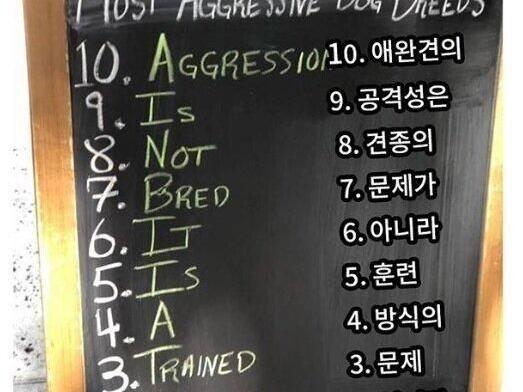 MOST AGGRESSIVE DOG BREEDS
10. AGGRESSION 10. 애완견의
9. IS 9. 공격성은
8. NOT 8. 견종의
7. BRED 7. 문제가
6. IT 6. 아니라
5. IS 5. 훈련
4. A 4. 방식의
3. TRAINED 3. 문제